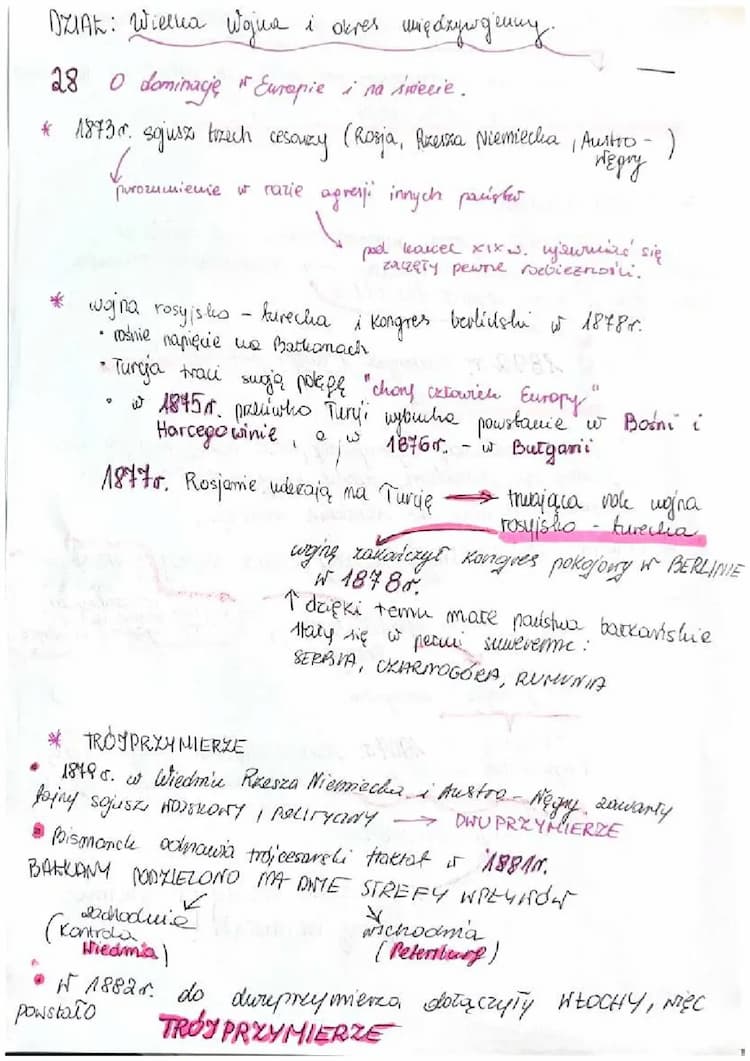 DZIAŁ: Wielka Wojna i okres międzywojenny.
28 O dominację w Europie i na świecie.
* 1873r. sojusz trzech cesarzy (Rosja, Rzesza Niemiecka, Austro-
Węgry)
porozumienie w razie agresji innych państw
pod koniec XIX w. ujawniać się
zaczęły pewne rozbieżności.
* wojna rosyjsko - turecka i kongres berliński w 1878r.
• rośnie napięcie na Bałkanach
• Turcja traci swoją potęgę "chory człowiek Europy"
• w 1875r. przeciwko Turcji wybucha powstanie w Bośni i
Hercegowinie, a w 1876r. - w Bułgarii
1877r. Rosjanie uderzają na Turcję → trwająca rok wojna
rosyjsko - turecka
wojnę zakończył kongres pokojowy w BERLINIE
w 1878r.
↑ dzięki temu małe państwa bałkańskie
stały się w pełni suwerenne:
SERBIA, CZARNOGÓRA, RUMUNIA
* TRÓJPRZYMIERZE
• 1879r. w Wiedniu Rzesza Niemiecka i Austro-Węgry zawarły
tajny sojusz WOJSKOWY i POLITYCZNY → DWUPRZYMIERZE
• Bismarck odnawia trójcesarski traktat w 1881r.
BAŁKANY PODZIELONO NA DWIE STREFY WPŁYWÓW
zachodnia wschodnia
(kontrola (Petersburg)
Wiednia)
• W 1882r. do dwuprzymierza dołączyły WŁOCHY, WIĘC
powstało TRÓJPRZYMIERZE